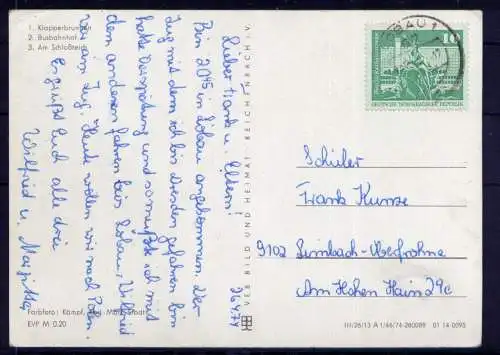 1. Klapperbrunnen
2. Busbahnhof
3. Am Schloßteich
Lieber Frank u. Eltern!
Bin 20⁴⁵ in Löbau angekommen. Der
Zug mit dem ich bis Dresden gefahren bin
hatte Verspätung und so mußte ich mit
dem anderen fahren bis Löbau. Wilfried
war am Zug. Heute wollen wir nach
Es grüßt Euch alle drei
Wilfried u.
26.4.74
Farbfoto: Kampf, Karl-Marx-Stadt
EVP M 0.20
VEB BILD UND HEIMAT REICHENBACH I. V.
10
DEUTSCHE DEMOKRATISCHE REPUBLIK
LÖBAU 1
Schüler
Frank Kunze
9102 Limbach-Oberfrohna
Am Hohen Hain 29c
III/26/13 A 1/46/74-280089 01 14 0095